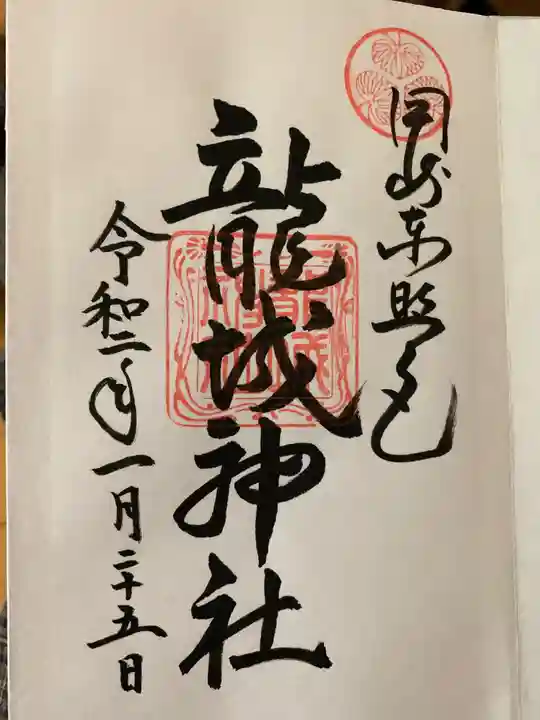 岡崎東照宮
龍城神社
令和二年一月二十五日